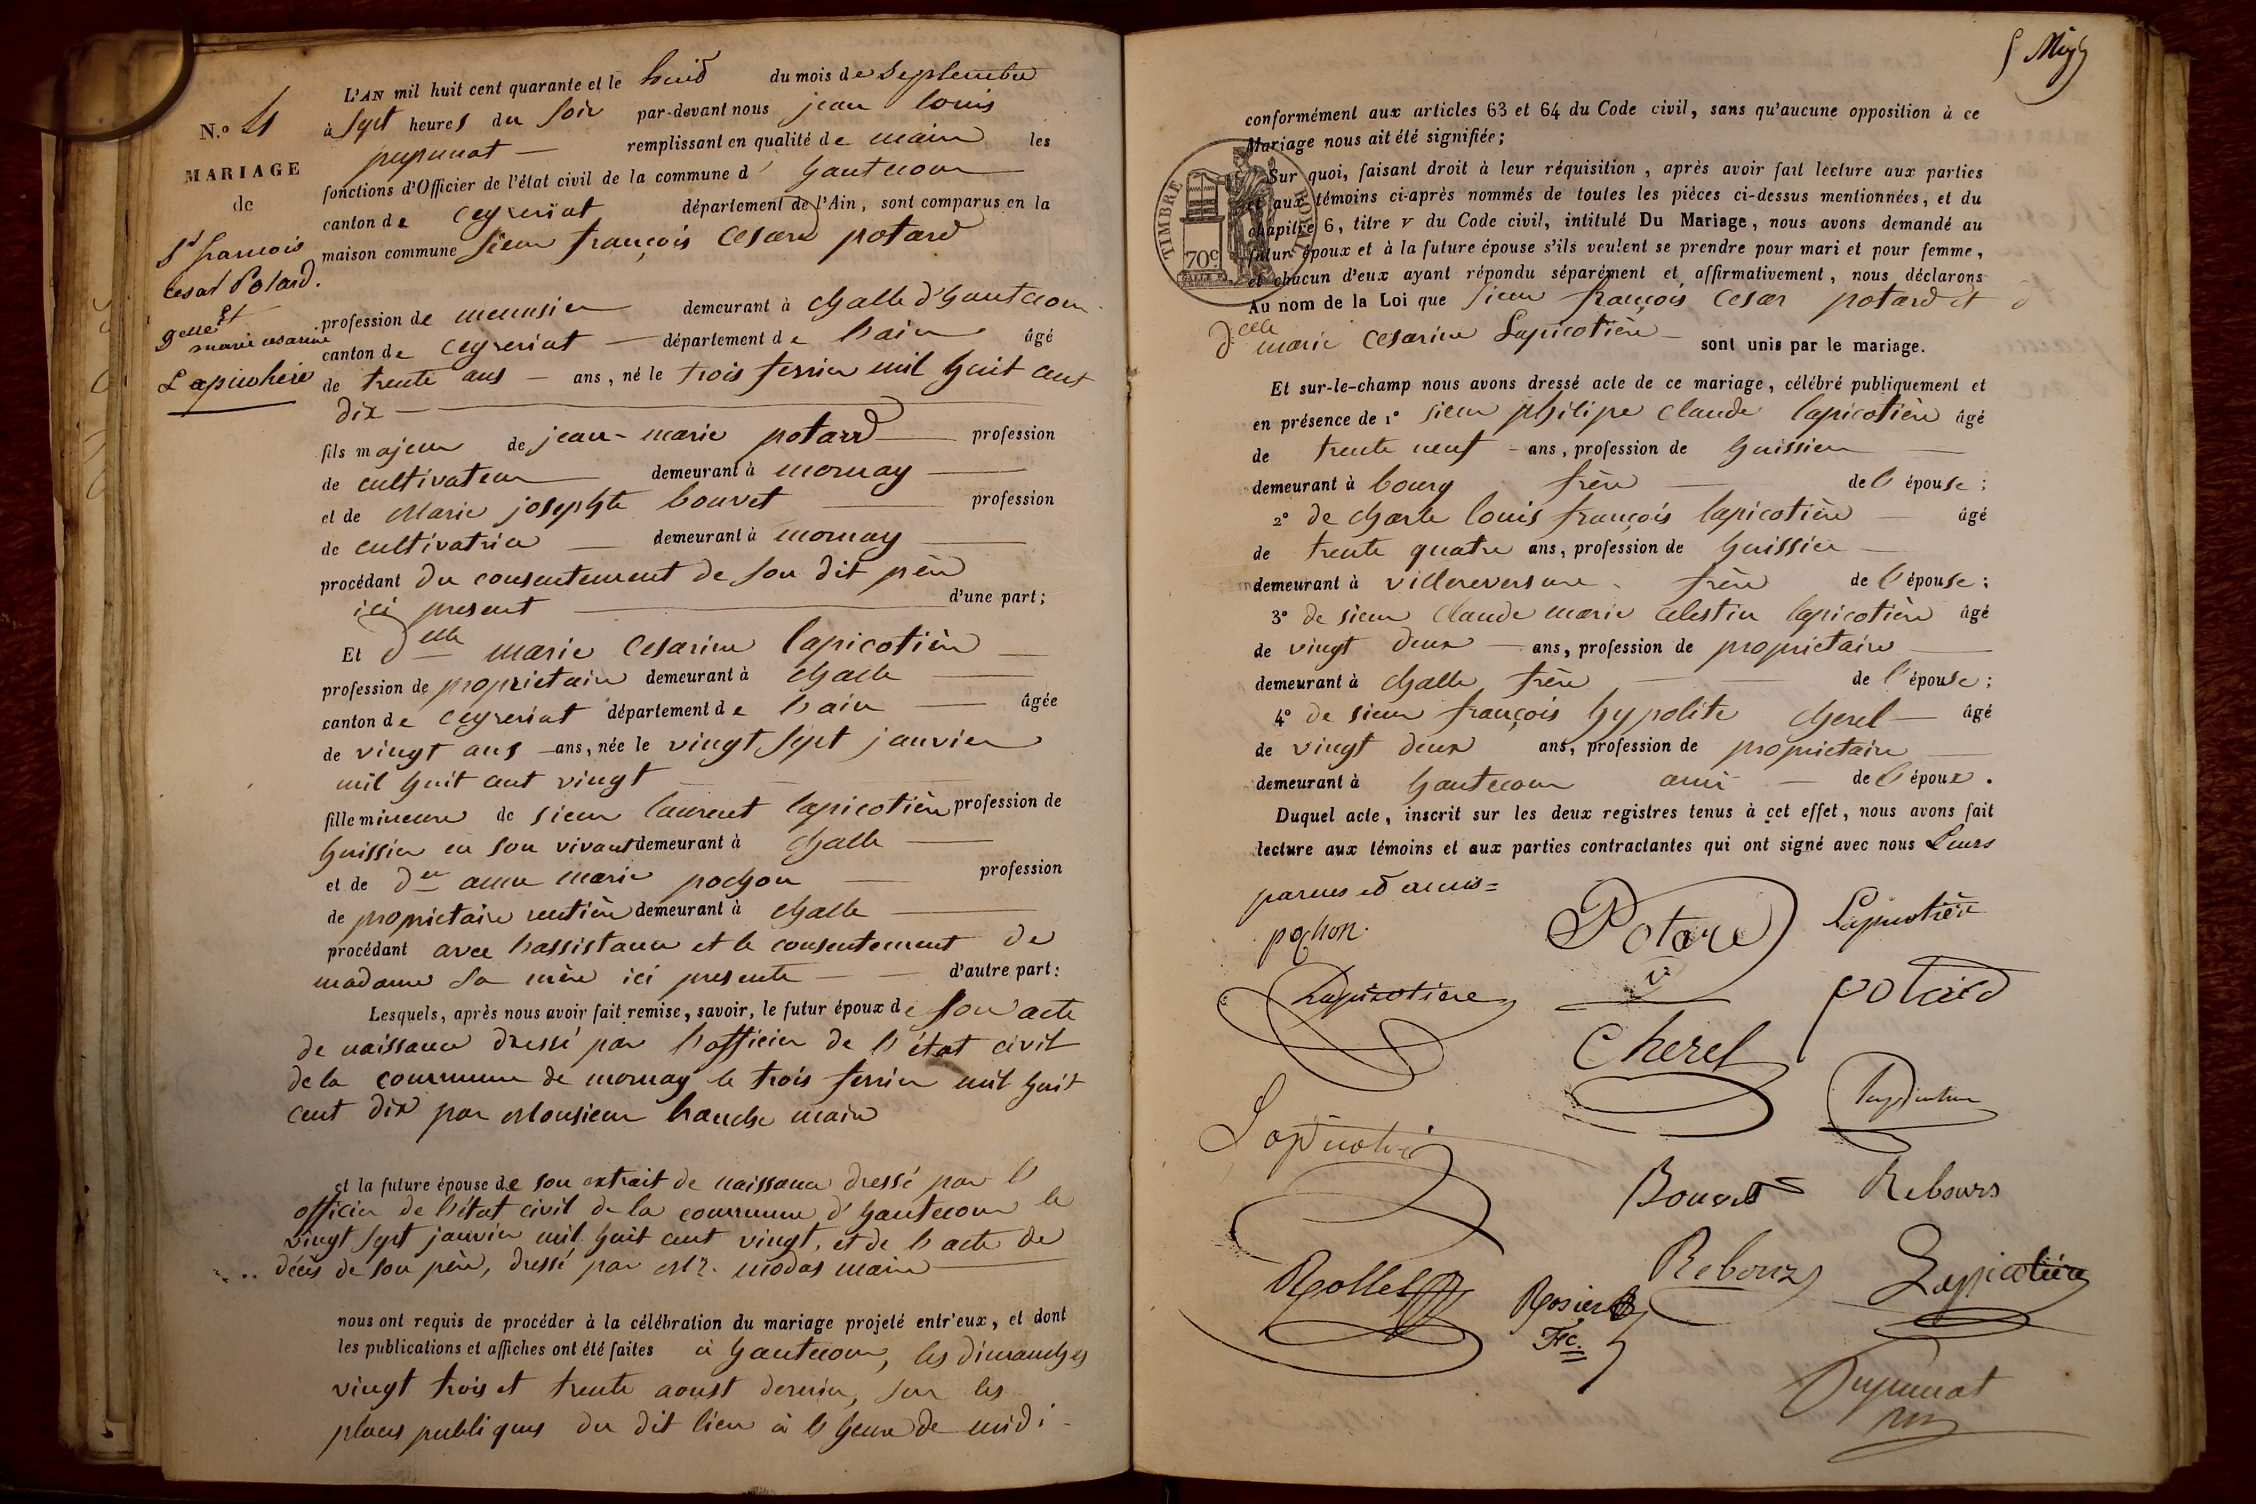 N.º 4
MARIAGE
de
Sr francois
cesar Potard.
et
Delle marie cesarine
Lapicotière
L'AN mil huit cent quarante et le huit du mois de Septembre
à Sept heures du Soir par-devant nous jean louis
pupunat remplissant en qualité de maire les
fonctions d'Officier de l'état civil de la commune d' hautecour
canton de Ceyzeriat département de l'Ain, sont comparus en la
maison commune Sieur françois Cesard potard
profession de menusier demeurant à challe d'hautecour
canton de Ceyzeriat département de lain âgé
de trente ans ans, né le trois fevrier mil huit cent
dix
fils majeur de jean-marie potard profession
de cultivateur demeurant à mornay
et de Marie josephte bouvet profession
de cultivatrice demeurant à mornay
procédant du consentement de son dit père
ici present d'une part;
Et delle marie Cesarine lapicotière
profession de proprietaire demeurant à challe
canton de Ceyzeriat département de lain âgée
de vingt ans ans, née le vingt sept janvier
mil huit cent vingt
fille mineure de sieur laurent lapicotière profession de
huissier en son vivant demeurant à challe
et de de anne marie pochon profession
de proprietaire rentière demeurant à challe
procédant avec lassistance et le consentement de
madame sa mère ici presente d'autre part:
Lesquels, après nous avoir fait remise, savoir, le futur époux de son acte
de naissance dressé par lofficier de l'état civil
de la commune de mornay le trois fevrier mil huit
cent dix par Monsieur maire
et la future épouse de son extrait de naissance dressé par l
officier de létat civil de la commune d'hautecour le
vingt sept janvier mil huit cent vingt, et de lacte de
décès de son père, dressé par Mr. modas maire
nous ont requis de procéder à la célébration du mariage projeté entr'eux, et dont
les publications et affiches ont été faites à hautecour, les dimanches
vingt trois et trente aoust dernier, sur les
places publiques du dit lieu à lheure de midi
conformément aux articles 63 et 64 du Code civil, sans qu'aucune opposition à ce
Mariage nous ait été signifiée;
TIMBRE ROYAL
70c
Sur quoi, faisant droit à leur réquisition, après avoir fait lecture aux parties
et aux témoins ci-après nommés de toutes les pièces ci-dessus mentionnées, et du
chapitre 6, titre v du Code civil, intitulé Du Mariage, nous avons demandé au
futur époux et à la future épouse s'ils veulent se prendre pour mari et pour femme,
et chacun d'eux ayant répondu séparément et affirmativement, nous déclarons
Au nom de la Loi que Sieur françois Cesar potard et
delle marie Cesarine Lapicotière sont unis par le mariage.
Et sur-le-champ nous avons dressé acte de ce mariage, célébré publiquement et
en présence de 1º sieur philipe claude lapicotière âgé
de trente neuf ans, profession de huissier
demeurant à bourg frère de l'épouse;
2º de charle louis françois lapicotière âgé
de trente quatre ans, profession de huissier
demeurant à villereversure frère de l'épouse;
3º de sieur claude marie celestin lapicotière âgé
de vingt deux ans, profession de proprietaire
demeurant à challe frère de l'épouse;
4º de sieur françois hypolite cherel âgé
de vingt deux ans, profession de proprietaire
demeurant à hautecour ami de l'époux.
Duquel acte, inscrit sur les deux registres tenus à cet effet, nous avons fait
lecture aux témoins et aux parties contractantes qui ont signé avec nous Leurs
parens et amis
pochon. Potard Lapicotière
Lapicotiere potard
Cherel
Lapicotière
Bouvet Rebours
Rollet Rosier Rebour Lapicotière
Pupunat